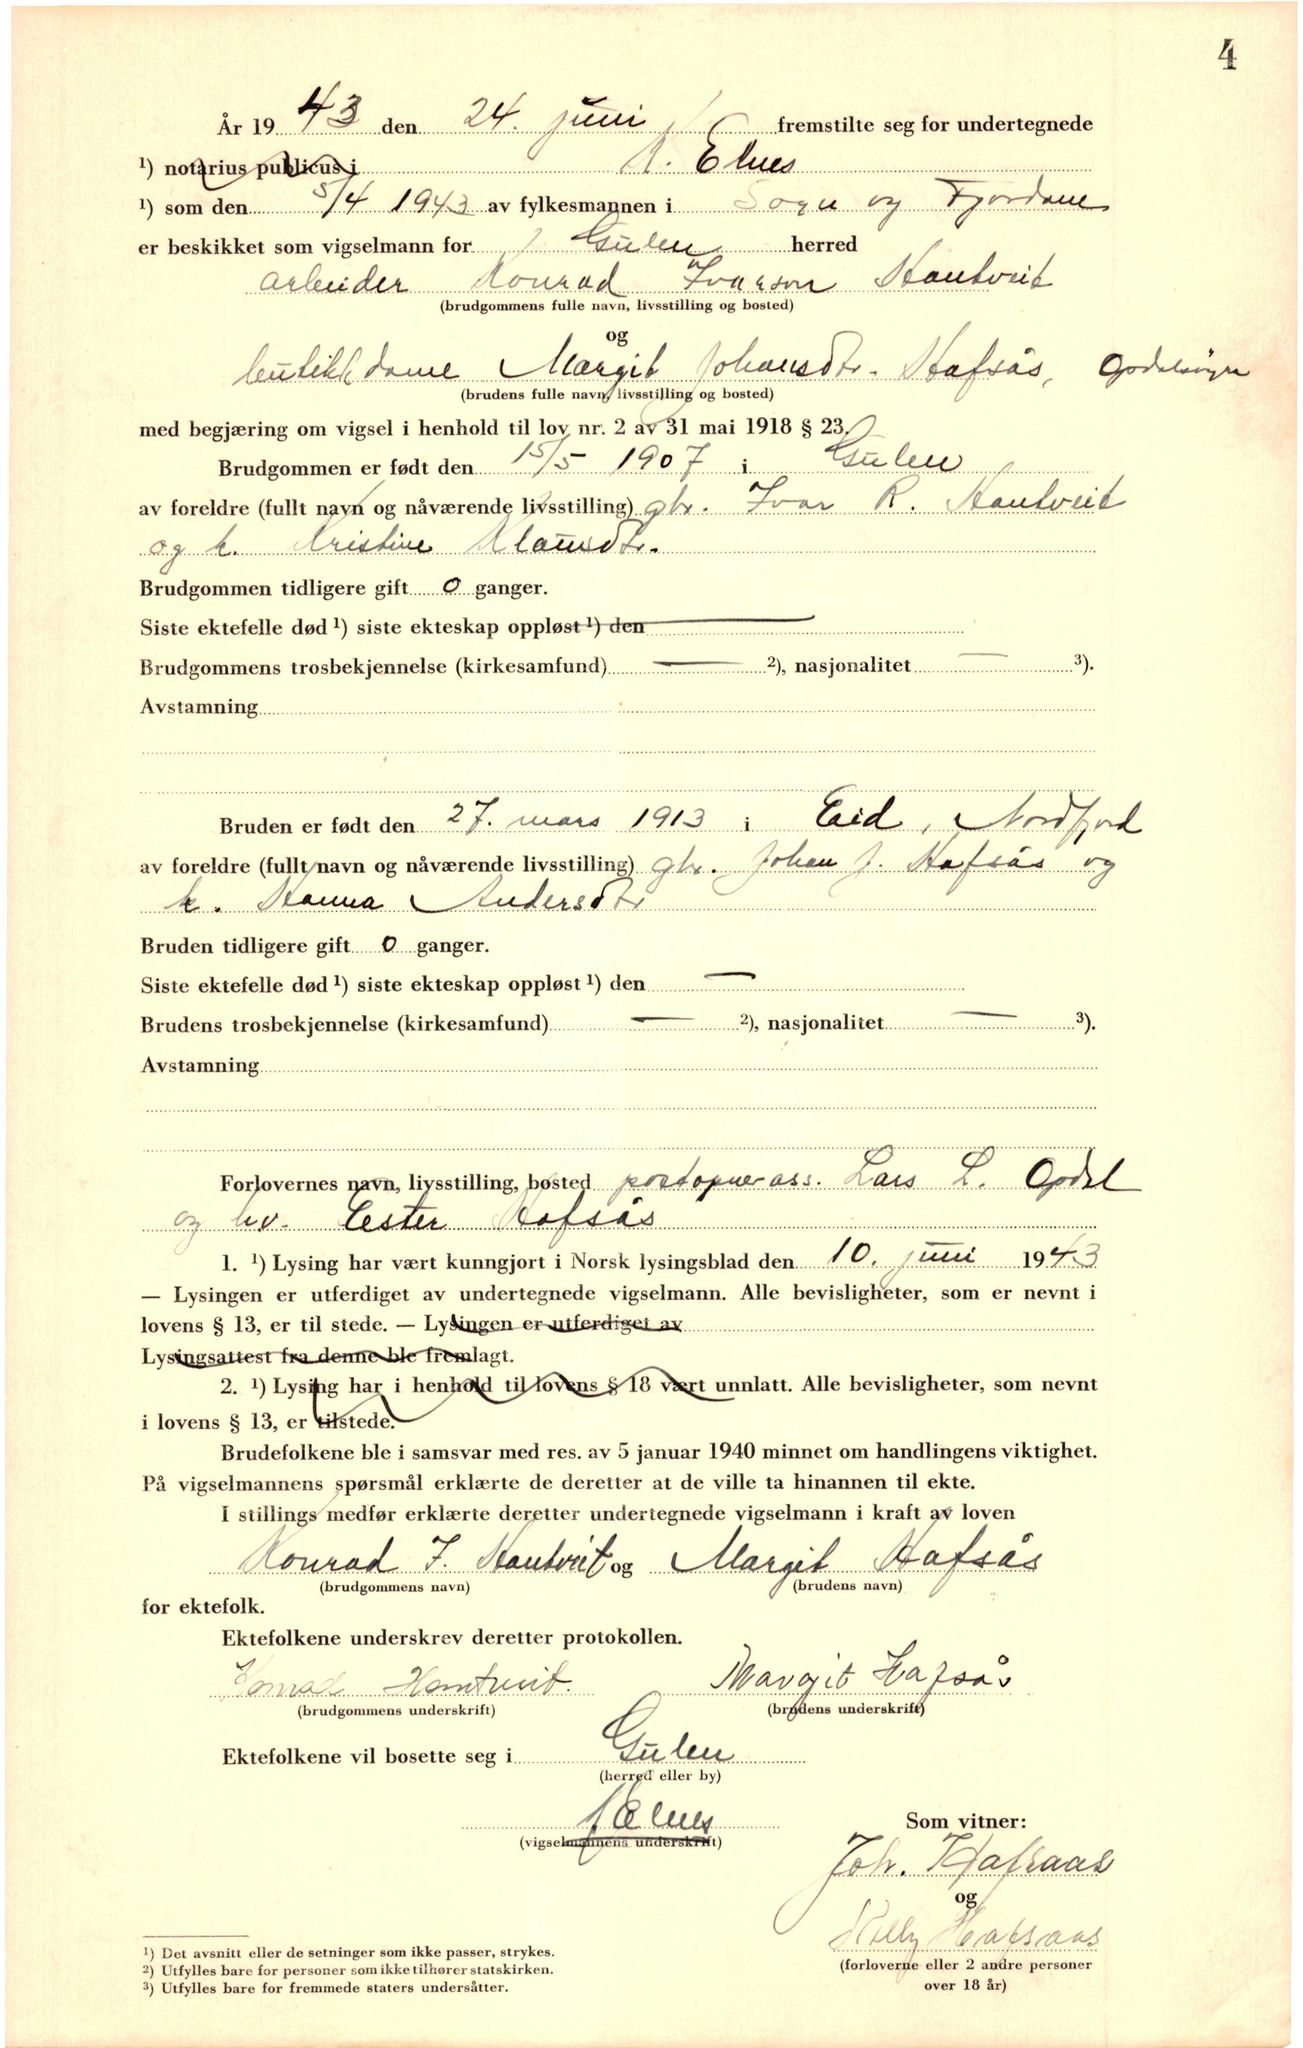 4
År 19 43 den 24. juni fremstilte seg for undertegnede
¹) notarius publicus i Elnes
¹) som den 5/4 1943 av fylkesmannen i Sogn og Fjordane
er beskikket som vigselmann for Gulen herred
arbeider Konrad Ivarson Hantveit
(brudgommens fulle navn, livsstilling og bosted)
og
butikkdame Margit Johansdtr. Hafsås,
(brudens fulle navn, livsstilling og bosted)
med begjæring om vigsel i henhold til lov nr. 2 av 31 mai 1918 § 23.
Brudgommen er født den 15/5 1907 i Gulen
av foreldre (fullt navn og nåværende livsstilling) gbr. Ivar R. Hantveit
og k. Kristine Klausdtr.
Brudgommen tidligere gift 0 ganger.
Siste ektefelle død ¹) siste ekteskap oppløst ¹) den
Brudgommens trosbekjennelse (kirkesamfund) — ²), nasjonalitet — ³).
Avstamning
Bruden er født den 27. mars 1913 i Eid, Nordfjord
av foreldre (fullt navn og nåværende livsstilling) gbr. Johan J. Hafsås og
k. Hanna Andersdtr
Bruden tidligere gift 0 ganger.
Siste ektefelle død ¹) siste ekteskap oppløst ¹) den —
Brudens trosbekjennelse (kirkesamfund) — ²), nasjonalitet — ³).
Avstamning
Forlovernes navn, livsstilling, bosted postopner ass. Lars L. Opdal
og hv. Ester Hafsås
1. ¹) Lysing har vært kunngjort i Norsk lysingsblad den 10. juni 1943
— Lysingen er utferdiget av undertegnede vigselmann. Alle bevisligheter, som er nevnt i
lovens § 13, er til stede. — Lysingen er utferdiget av
Lysingsattest fra denne ble fremlagt.
2. ¹) Lysing har i henhold til lovens § 18 vært unnlatt. Alle bevisligheter, som nevnt
i lovens § 13, er tilstede.
Brudefolkene ble i samsvar med res. av 5 januar 1940 minnet om handlingens viktighet.
På vigselmannens spørsmål erklærte de deretter at de ville ta hinannen til ekte.
I stillings medfør erklærte deretter undertegnede vigselmann i kraft av loven
Konrad I. Hantveit og Margit Hafsås
(brudgommens navn) (brudens navn)
for ektefolk.
Ektefolkene underskrev deretter protokollen.
Konrad Hantveit. Margit Hafsås
(brudgommens underskrift) (brudens underskrift)
Ektefolkene vil bosette seg i Gulen
(herred eller by)
Elnes
(vigselmannens underskrift)
Som vitner:
Joh. Hafsaas
og
Hafsaas
(forloverne eller 2 andre personer
over 18 år)
¹) Det avsnitt eller de setninger som ikke passer, strykes.
²) Utfylles bare for personer som ikke tilhører statskirken.
³) Utfylles bare for fremmede staters undersåtter.